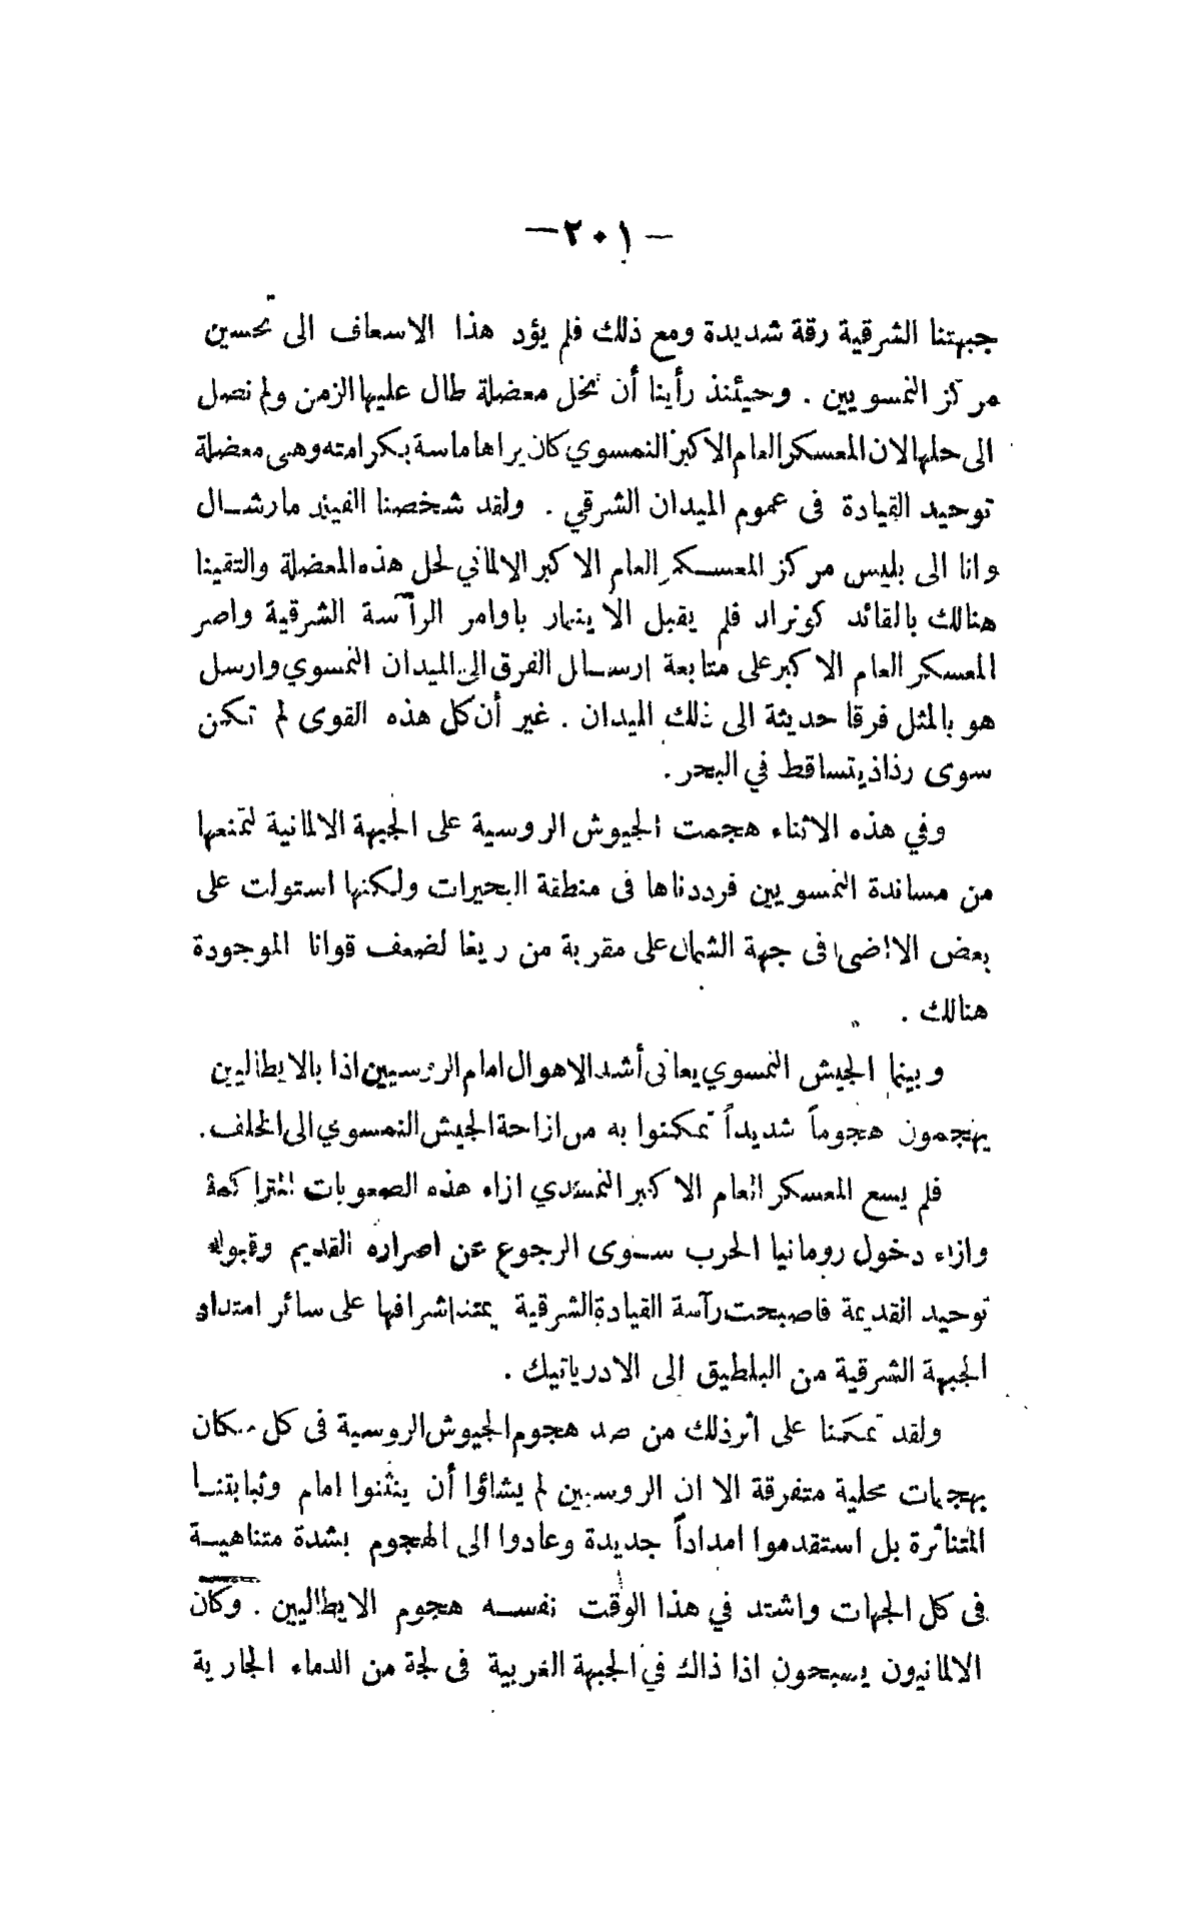 — ٢٠١ —
جبهتنا الشرقية رقة شديدة ومع ذلك فلم يؤد هذا الاسعاف الى تحسين
مركز النمسويين . وحيئنذ رأينا أن نحل معضلة طال عليها الزمن ولم نصل
الى حلها الان المعسكر العام الاكبر النمسوي كان يراها ماسة بكرامته وهى معضلة
توحيد القيادة فى عموم الميدان الشرقي . ولقد شخصنا الفيلد مارشال
وانا الى بليس مركز المعسكر العام الاكبر الالماني لحل هذه المعضلة والتقينا
هنالك بالقائد كونراد فلم يقبل الا ينهار باوامر الرآسة الشرقية واصر
المعسكر العام الاكبر على متابعة ارسال الفرق الى الميدان النمسوي وارسل
هو بالمثل فرقا حديثة الى ذلك الميدان . غير أن كل هذه القوى لم تكن
سوى رذاذ يتساقط في البحر .
وفي هذه الاثناء هجمت الجيوش الروسية على الجبهة الالمانية لتمنعها
من مساندة النمسويين فرددناها فى منطقة البحيرات ولكنها استولت على
بعض الاراضى فى جهة الشمال على مقربة من ريغا لضعف قوانا الموجودة
هنالك .
وبينما الجيش النمسوي يعانى أشد الاهوال امام الروسيين اذا بالايطاليين
يهجمون هجوماً شديداً تمكنوا به من ازاحة الجيش النمسوي الى الخلف .
فلم يسع المعسكر العام الاكبر النمسوي ازاء هذه الصعوبات المتراكمة
وازاء دخول رومانيا الحرب سوى الرجوع عن اصراره القديم وقبوله
توحيد القديمة فاصبحت رآسة القيادة الشرقية يمتد اشرافها على سائر امتداد
الجبهة الشرقية من البلطيق الى الادرياتيك .
ولقد تمكنا على اثر ذلك من صد هجوم الجيوش الروسية فى كل مكان
بهجمات محلية متفرقة الا ان الروسيين لم يشاؤا أن ينثنوا امام وثباتنا
المتناثرة بل استقدموا امداداً جديدة وعادوا الى الهجوم بشدة متناهية
فى كل الجهات واشتد في هذا الوقت نفسه هجوم الايطاليين . وكان
الالمانيون يسبحون اذا ذاك في الجبهة الغربية فى لجة من الدماء الجارية